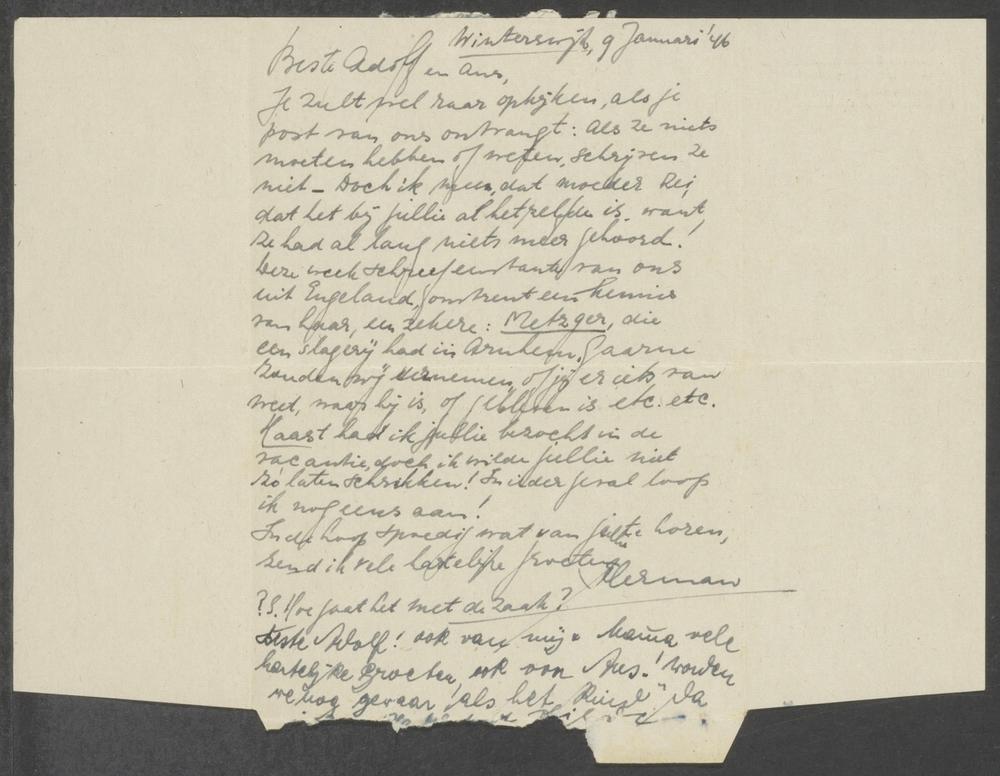 Winterswijk, 9 Januari '46
Beste Adolf en Ans,
Je zult wel raar opkijken, als je
post van ons ontvangt: Als ze niets
moeten hebben of weten, schrijven ze
niet – Doch ik meen, dat moeder zei,
dat het bij jullie al hetzelfde is, want,
ze had al lang niets meer gehoord!
Deze week schreef een tante van ons
uit Engeland, omtrent een kennis
van haar, een zekere: Metzger, die
een slagerij had in Arnhem. Gaarne
zouden wij vernemen, of jij er iets van
weet, waar hij is, of gebleven is etc. etc.
Haast had ik jullie bezocht in de
vacantie, doch ik wilde jullie niet
zo laten schrikken! In ieder geval loop
ik nog eens aan!
In de hoop spoedig wat van jullie te horen,
zend ik vele hartelijke groeten
Herman
P.S. Hoe gaat het met de zaak?
Beste Adolf! ook van mij + Mama vele
hartelijke groeten, ook von Ans! worden
we nog gevaar als het da